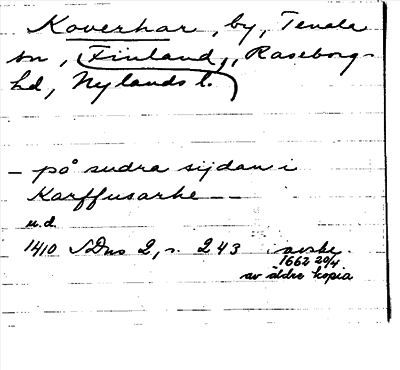 Koverhar, by, Tenala
sn, Finland, Raseborgs
hd, Nylands l.
– på sudra sijdan i
Karffusarke – –
u.d.
1410 SDns 2, s. 243 avskr.
1662 20/4
av äldre kopia